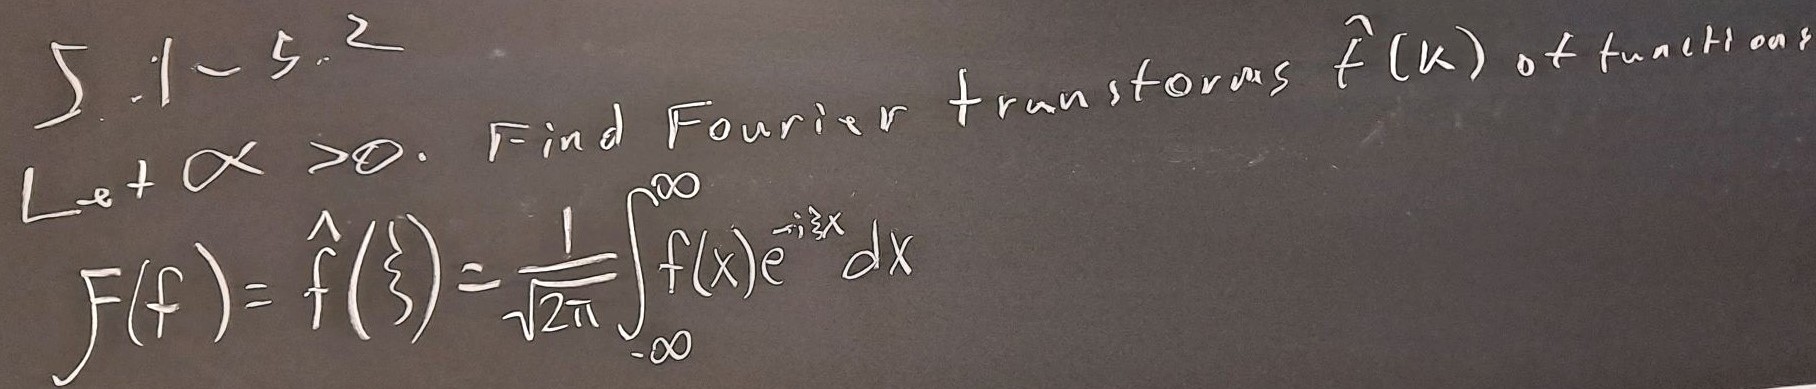 5.1-5.2
Let α >0. Find Fourier transforms f̂(k) of functions
F(f) = f̂(ξ) = 1/√2π ∫_{-∞}^{∞} f(x)e^{-iξx} dx